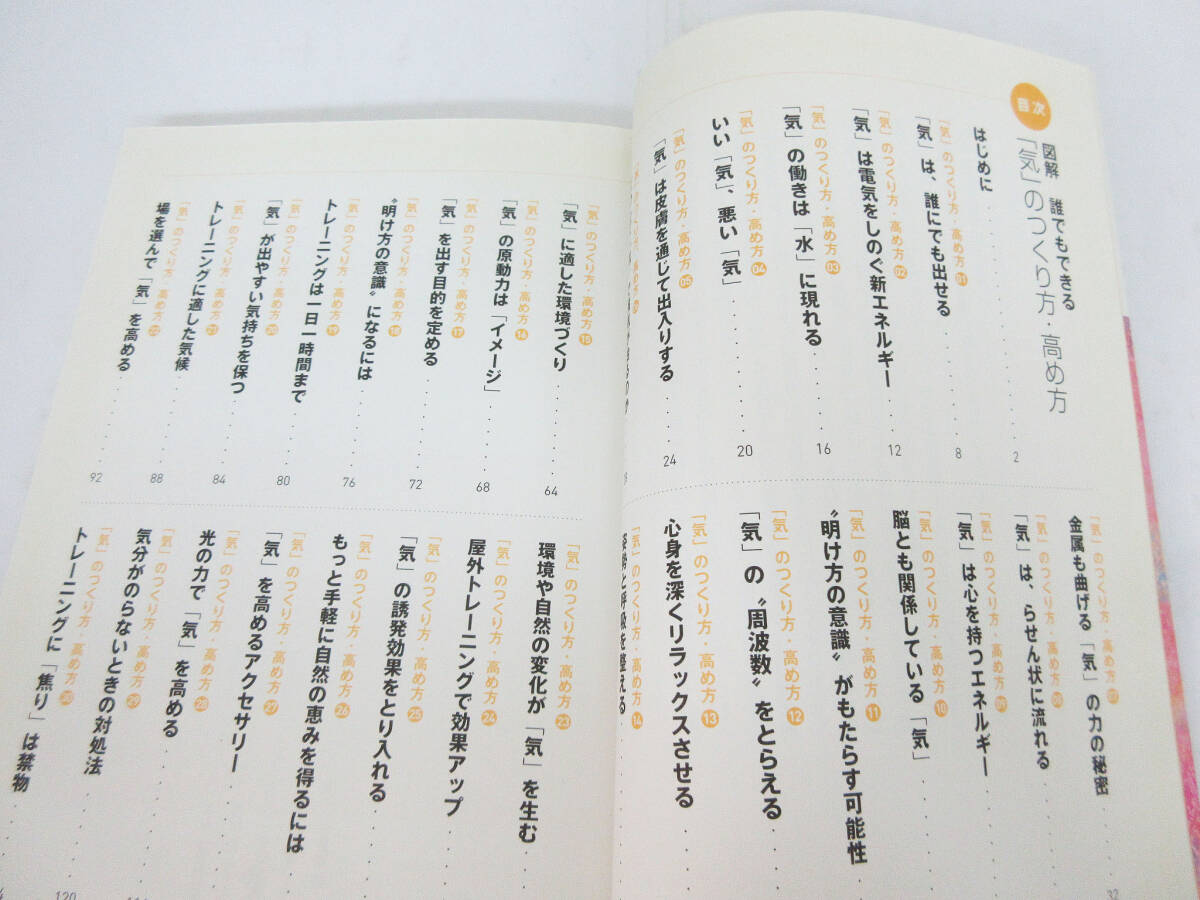 目次
図解 誰でもできる
「気」のつくり方・高め方
はじめに 2
「気」のつくり方・高め方 01
「気」は、誰にでも出せる 8
「気」のつくり方・高め方 02
「気」は電気をしのぐ新エネルギー 12
「気」のつくり方・高め方 03
「気」の働きは「水」に現れる 16
「気」のつくり方・高め方 04
いい「気」、悪い「気」 20
「気」のつくり方・高め方 05
「気」は皮膚を通じて出入りする 24
「気」のつくり方・高め方 07
金属も曲げる「気」の力の秘密 32
「気」のつくり方・高め方 08
「気」は、らせん状に流れる
「気」のつくり方・高め方 09
「気」は心を持つエネルギー
「気」のつくり方・高め方 10
脳とも関係している「気」
「気」のつくり方・高め方 11
〝明け方の意識〟がもたらす可能性
「気」のつくり方・高め方 12
「気」の〝周波数〟をとらえる
「気」のつくり方・高め方 13
心身を深くリラックスさせる
「気」のつくり方・高め方 14
姿勢と呼吸を整える
「気」のつくり方・高め方 15
「気」に適した環境づくり 64
「気」のつくり方・高め方 16
「気」の原動力は「イメージ」 68
「気」のつくり方・高め方 17
「気」を出す目的を定める 72
「気」のつくり方・高め方 18
〝明け方の意識〟になるには 76
「気」のつくり方・高め方 19
トレーニングは一日一時間まで 80
「気」のつくり方・高め方 20
「気」が出やすい気持ちを保つ 84
「気」のつくり方・高め方 21
トレーニングに適した気候 88
「気」のつくり方・高め方 22
場を選んで「気」を高める 92
「気」のつくり方・高め方 23
環境や自然の変化が「気」を生む
「気」のつくり方・高め方 24
屋外トレーニングで効果アップ
「気」のつくり方・高め方 25
「気」の誘発効果をとり入れる
「気」のつくり方・高め方 26
もっと手軽に自然の恵みを得るには
「気」のつくり方・高め方 27
「気」を高めるアクセサリー
「気」のつくり方・高め方 28
光の力で「気」を高める
「気」のつくり方・高め方 29
気分がのらないときの対処法 120
「気」のつくり方・高め方 30
トレーニングに「焦り」は禁物